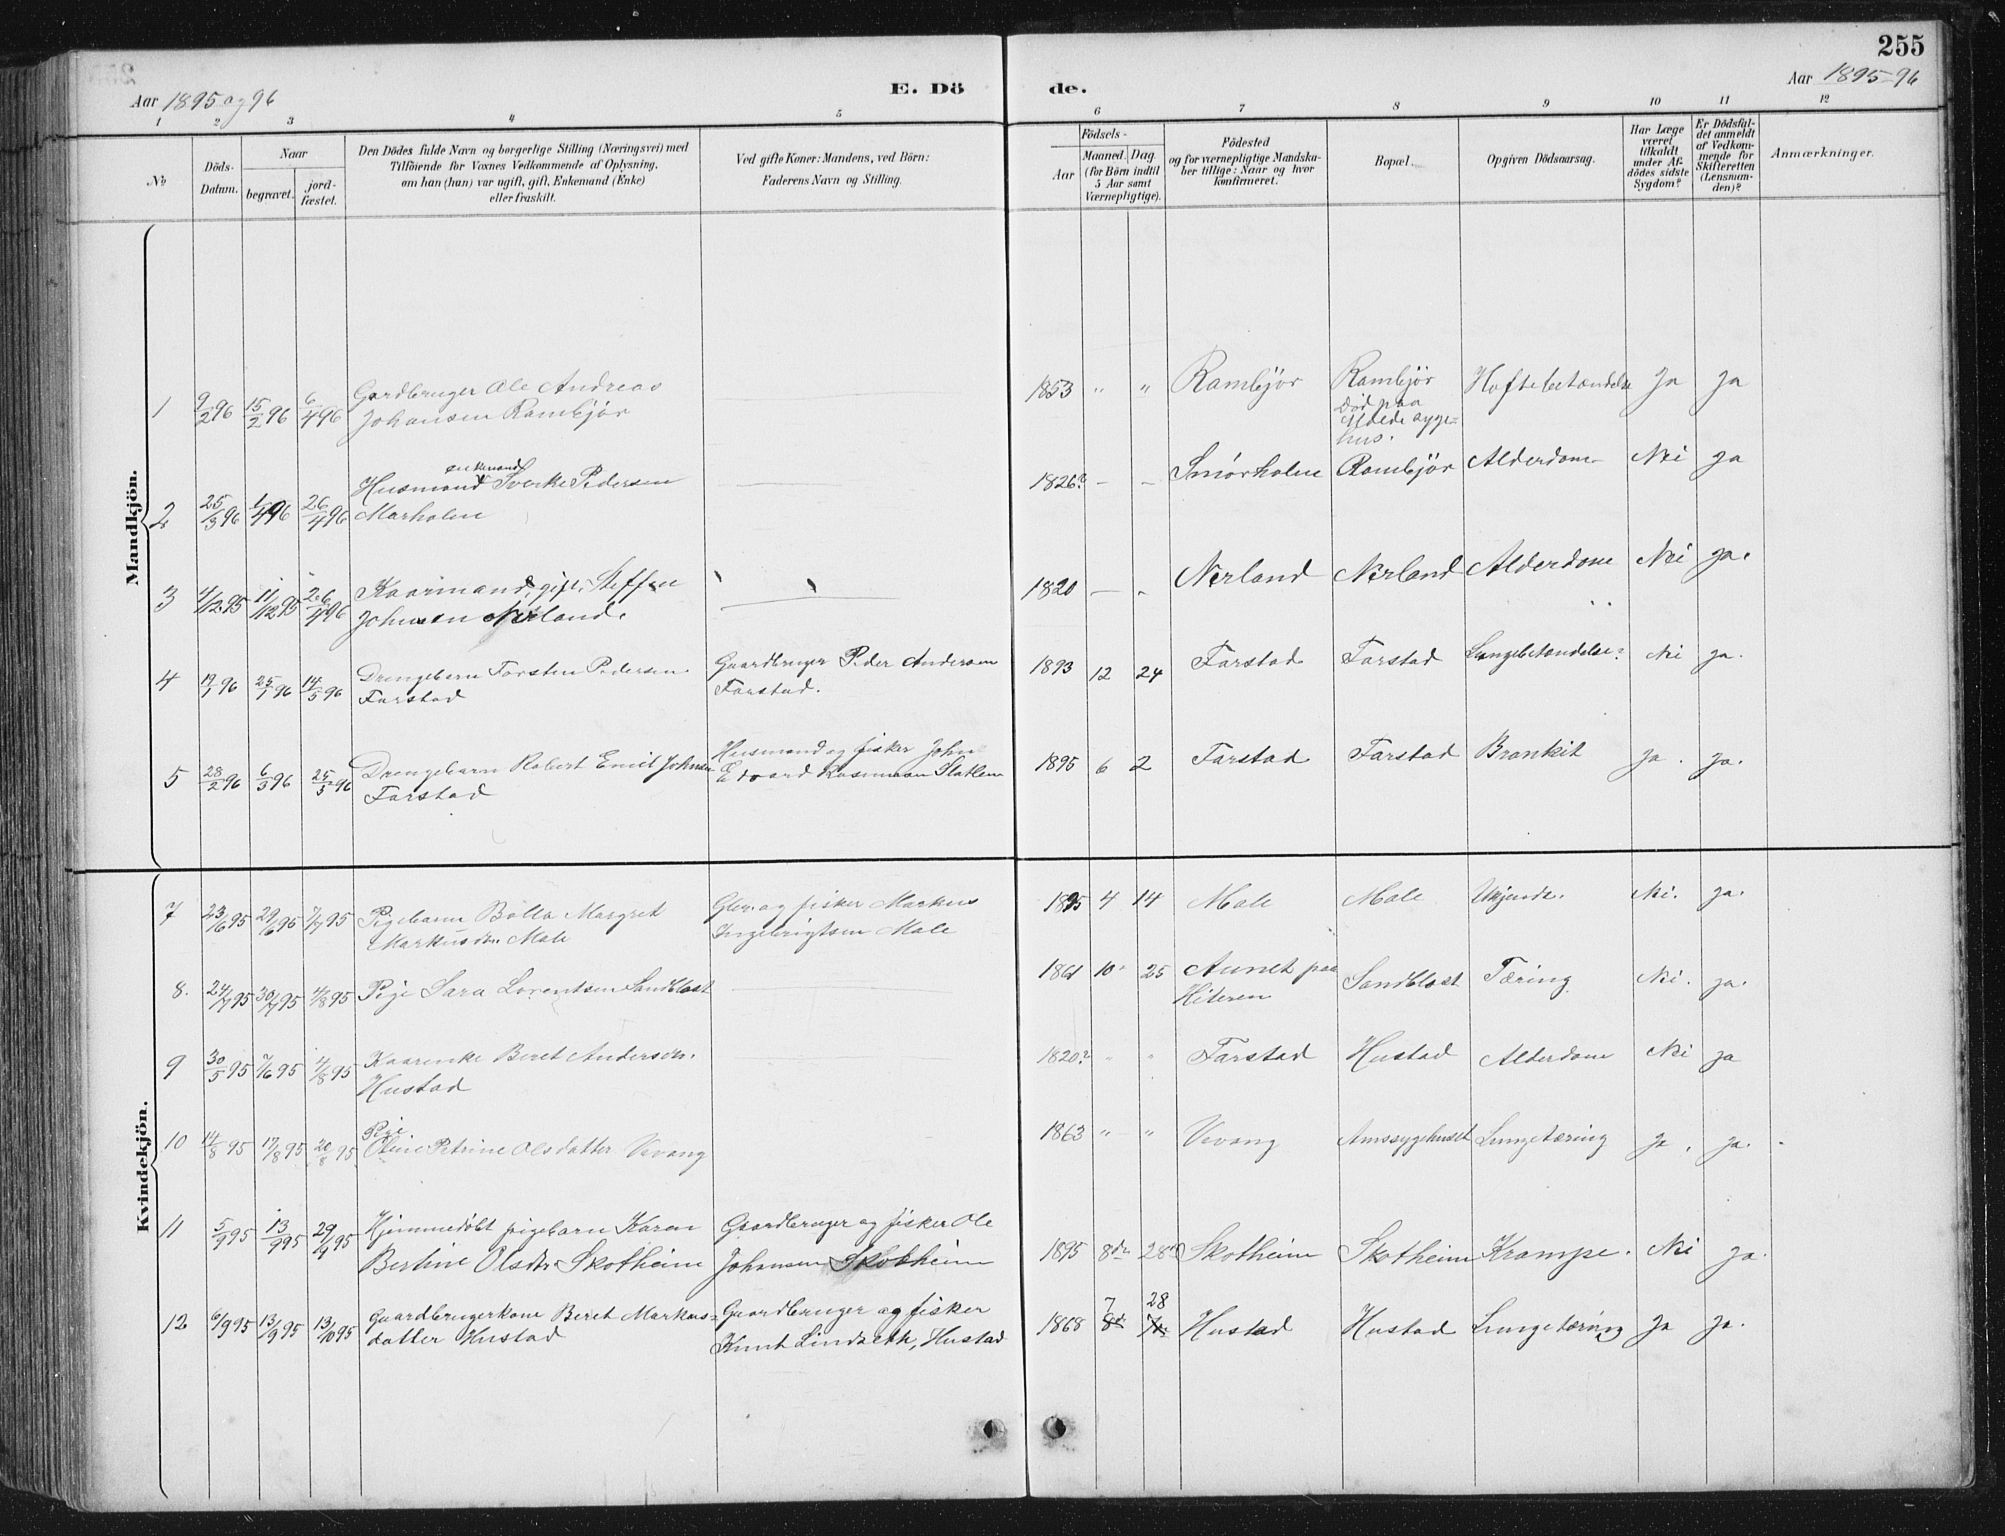 255
Aar 1895 og 96
E. Dö
de.
Aar 1895-96
1 2 3 4 5 6 7 8 9 10 11 12
No
Döds-Datum.
Naar
begravet.
jord-fæstet.
Den Dödes fulde Navn og borgerlige Stilling (Næringsvei) med
Tilföiende for Voxnes Vedkommende af Oplysning,
om han (hun) var ugift, gift, Enkemand (Enke)
eller fraskilt.
Ved gifte Koner: Mandens, ved Börn:
Faderens Navn og Stilling.
Födsels-
Aar
Maaned. Dag
(for Börn indtil
5 Aar samt
Værnepligtige).
Födested
og for værnepligtige Mandska-
ber tillige: Naar og hvor
konfirmeret.
Bopæl.
Opgiven Dödsaarsag.
Har Læge
været
tilkaldt
under Af-
dödes sidste
Sygdom?
Er Dödsfal-
det anmeldt
af Vedkom-
mende for
Skifteretten
(Lensman-
den)?
Anmærkninger.
Mandkjön.
1 9/2 96 15/2 96 6/4 96 Gardbruger Ole Andreas 1853 " " Rambjør Rambjør Hoftebetændelse Ja Ja
Johansen Rambjør
Død paa
Molde syge-
hus.
enkemand
2 25/3 96 1/4 96 26/4 96 Husmand Sverke Pedersen 1826? - - Smørholm Rambjør Alderdom Nei Ja
Marholm
3 4/12 95 11/12 95 26/4 96 Kaarmand, gift, Steffen 1820 - - Nerland Nerland Alderdom Nei Ja.
Johnsen Nerland.
4 19/1 96 25/1 96 14/5 96 Drengebarn Torsten Pedersen Gaardbruger Peder Andersen 1893 12 24 Farstad Farstad Lungebetændelse? Nei Ja.
Farstad Farstad.
5 28/2 96 6/3 96 25/5 96 Drengebarn Robert Emil Johnsen Husmand og fisker John 1895 6 2 Farstad Farstad Brankit Ja. Ja.
Farstad Edvard Rasmussen
Kvindekjön.
7 23/6 95 29/6 95 7/7 95 Pigebarn Bolla Margret Gbr. og fisker Markus 1895 4 14 Male Male Ukjendt. Nei. Ja.
Markusdtr. Male Ingebrigtsen Male
8. 24/7 95 30/7 95 4/8 95 Pige Sara Lorentsen Sandblost 1861 10 25 Aunet paa Sandblost Tæring Nei. Ja.
Hiteren
9 30/5 95 7/6 95 4/8 95 Kaarenke Beret Andersdtr. 1820? " " Farstad Hustad Alderdom Nei Ja
Hustad
Pige
10 14/8 95 17/8 95 20/8 95 Oline Petrine Olsdatter Vevang 1863 " " Vevang Amssygehuset Lungetæring Ja. Ja.
11 5/9 95 13/9 95 29/9 95 Hjemmedøbt pigebarn Karen Gaardbruger og fisker Ole 1895 8de 28de Skotheim Skotheim Krampe. Nei Ja.
Bertine Olsdtr Skotheim Johansen Skotheim
7 28
12 6/9 95 13/9 95 13/10 95 Gaardbrugerkone Beret Markus- Gaardbruger og fisker 1868 Hustad Hustad Lungetæring Ja Ja.
datter Hustad Knut Lindbekk, Hustad